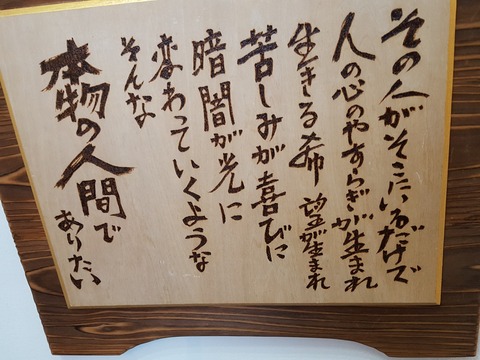 その人がそこにいるだけで
人の心のやすらぎが生まれ
生きる希望が生まれ
苦しみが喜びに
暗闇が光に
変わっていくような
そんな
本物の人間で
ありたい